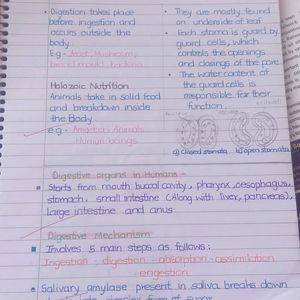 • Digestion takes place
before ingestion and
occurs outside the
body
Eg -
Holozoic Nutrition
Animals take in solid food
and breakdown inside
the Body
e.g - Amoeba, Animals
Human beings
• They are mostly found
on underside of leaf
• Each stoma is guard by
guard cells, which
controls the openings
and closings of the pore
• The water content of
the guard cells is
responsible for their
function
a) Closed stomata b) open stomata
Digestive organs in Humans -
Starts from mouth buccal cavity, pharynx, oesophagus,
stomach, small intestine (Along with liver, pancreas),
Large intestine and anus
Digestive Mechanism
Involves 5 main steps as follows:
Ingestion - digestion - absorption - assimilation
- engestion
Salivary amylase present in saliva breaks down